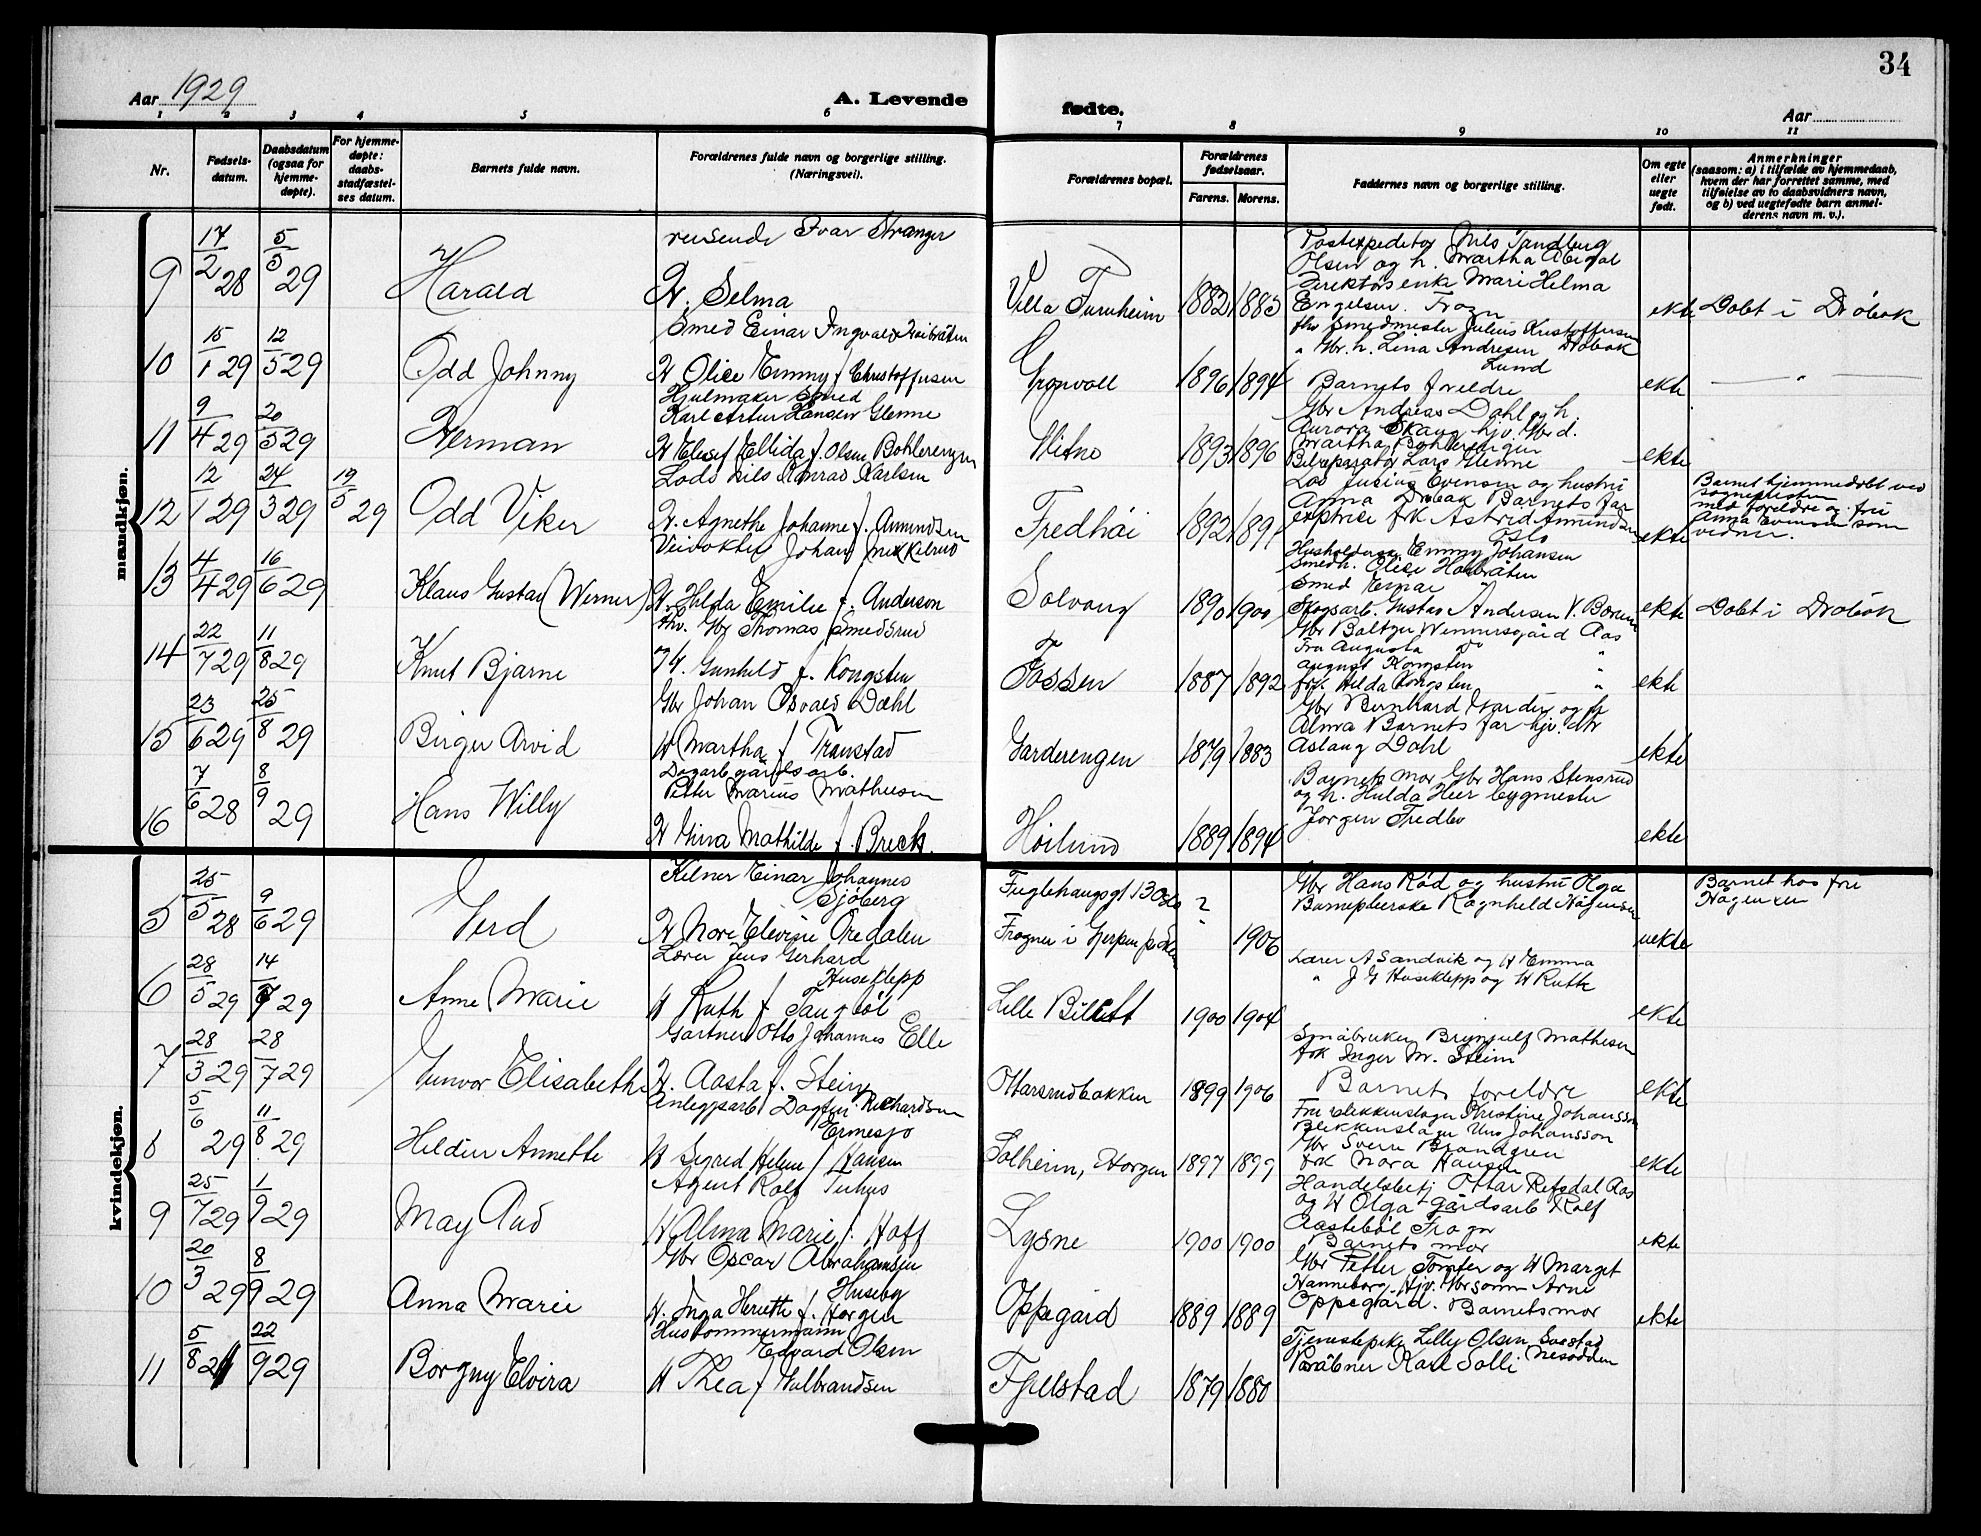 34
Aar 1929
A. Levende
fødte.
Aar
1 2 3 4 5 6 7 8 9 10 11
Nr.
Fødsels-
datum.
Daabsdatum
(ogsaa for
hjemme-
døpte).
For hjemme-
døpte:
daabs-
stadfæstel-
ses datum.
Barnets fulde navn.
Forældrenes fulde navn og borgerlige stilling.
(Næringsvei).
Forældrenes bopæl.
Forældrenes
fødselsaar.
Farens. Morens.
Faddernes navn og borgerlige stilling.
Om egte
eller
uegte
født.
Anmerkninger
(saasom: a) i tilfælde av hjemmedaab,
hvem der har forrettet samme, med
tilføielse av to daabsvidners navn,
og b) ved uegtefødte barn anmel-
derens navn m. v.).
mandkjøn.
9 17/2 28 5/5 29 Harald
reisende Ivar Stranger
H. Selma
Villa Furuheim 1882 1883
Postexpeditør Nils Tandberg
Olsen og h. Martha Abigal
Direktøs enke Mari Helma
Engelsen. Frogn
ekte Døbt i Drøbak
10 15/1 29 12/5 29 Odd Johnny
Smed Einar Ingvald
H Olise Emmy f Christoffersen
Gronvoll 1896 1894
fhv Smedmester Julius Kristoffersen
" Gbr. h. Lina Andresen Drøbak
Lund
Barnets foreldre
ekte — " —
11 9/4 29 20/5 29 Herman
Hjulmaker Smed
Karl Artur Hansen Glenne
H Elise Ellida f. Olsen Bohlerengen
Hitno 1893 1896
Gbr Andreas Dahl og h.
Aurora Skaug hjv. Gbr d.
Martha Bohlerengen
Bilreparatør Lars Glenne
ekte
12 12/1 29 24/3 29 19/5 29 Odd Viker
Lods Nils Konrad Karlsen
H. Agnethe Johanne f. Amundsen
Fredhøi 1892 1891
Los Julius Evensen og hustru
Anna Drøbak Barnets far
exptrice frk Astrid Amundsen
Oslo
ekte
Barnet hjemmedøbt ved
sognepresten
med foreldre og fru
Anna Evensen som
vidner.
13 4/4 29 16/6 29 Klaus Gustav (Werner)
Veivokter Johan Mikkelrud
H. Hilda Emilie f. Anderson
Solvang 1890 1900
Husholderske Emmy Johansen
Smedh. Olise
Smed Einar
Skogsarb. Gustav Andersen V. Bærum
ekte Døbt i Drøbak
14 22/7 29 11/8 29 Knut Bjarne
fhv. Gbr Thomas Smedsrud
H. Gunhild f. Kongsten
Fossen 1887 1892
Gbr Baltzer Wennersgård Aas
Fru Augusta do "
August Kongsten
frk. Hilda Kongsten "
ekte
15 23/6 29 25/8 29 Birger Arvid
Gbr Johan Osvald Dahl
H Martha f Transtad
Garderengen 1879 1883
Gbr Bernhard Garder og h
Alma Barnets far hjv. dtr
Aslaug Dahl
ekte
16 7/6 28 8/9 29 Hans Willy
Dagarb gårdsarb.
Petter Marius Mathiesen
H Gina Mathilde f. Breck.
Høilund 1889 1894
Barnets mor Gbr Hans Stensrud
og h. Hulda Heer bygmester
Jørgen Fredbo
ekte
kvindekjøn.
5 25/5 28 9/6 29 Gerd
Kelner Einar Johannes
Sjøberg
H Nore Elevine Øredalen
Fuglehauggt 13 Oslo ?
Frogner i Gjerpen p. Skien 1906
Gbr Hans Rød og hustru Olga
Barnepleierske Ragnhild Hågensen
uekte
Barnet hos fru
Hågensen
6 28/5 29 14/7 29 Anne Marie
Lærer Jens Gerhard
Huseklepp
H Ruth f Taugbøl
Lille Billett 1900 1904
Lærer A Sandvik og H Emma
" J G Huseklepp og H Ruth
ekte
7 28/3 29 28/7 29 Gunvor Elisabeth
Gartner Otto Johannes Elle
H. Aasta f. Stein
Ottarsrudbakken 1899 1906
Småbruker Brynjulf Mathisen
frk Inger M. Stein
Barnets foreldre
ekte
8 5/6 29 11/8 29 Hildur Annette
Anlegsarb Dagfin Richardsen
Ermesjø
H Sigrid Helene f Hansen
Solheim, Horgen 1897 1899
Fru blikkenslager Kristine Johansson
Blikkenslager Uno Johansson
Gbr Sverre Brandgren
frk Nora Hansen
ekte
9 25/7 29 1/9 29 May Aud
Agent Rolf Tuhus
H Alma Marie f. Hoff
Lysne 1900 1900
Handelsbetj Ottar Refsdal Aas
og H Olga Gårdsarb Rolf
Aastebøl Frogn
Barnets mor
ekte
10 20/3 29 8/9 29 Anna Marie
Gbr Oscar Abrahamsen
Huseby
H. Inga Henrette f. Horgen
Oppegård 1889 1889
Gbr Petter Tomter og H Margit
Hanneborg. Hjv. Gbrsønn Arne
Oppegård. Barnets mor
ekte
11 5/8 29 22/9 29 Borgny Elvira
Hustømmermann
Edvard Olsen
H Thea f Gulbrandsen
Fjellstad 1879 1880
Tjenestepike Lilly Olsen Svestad
Poståbner Karl Solli Nesodden